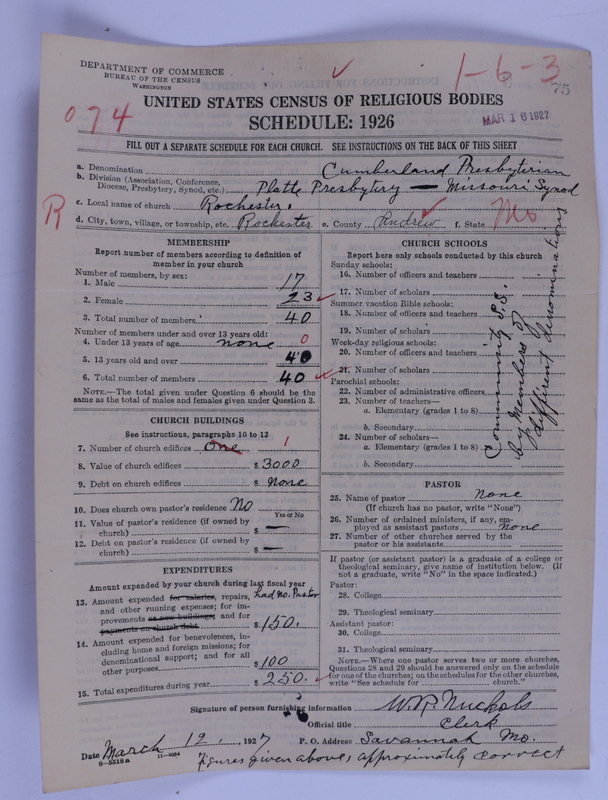 DEPARTMENT OF COMMERCE
BUREAU OF THE CENSUS
WASHINGTON
1-6-3
75
074
UNITED STATES CENSUS OF RELIGIOUS BODIES
MAR 16 1927
SCHEDULE: 1926
FILL OUT A SEPARATE SCHEDULE FOR EACH CHURCH. SEE INSTRUCTIONS ON THE BACK OF THIS SHEET
a. Denomination Cumberland Presbyterian
b. Division (Association, Conference, Diocese, Presbytery, Synod, etc.) Platte Presbytery — Missouri Synod
R
c. Local name of church Rochester.
d. City, town, village, or township, etc. Rochester e. County Andrew f. State Mo
MEMBERSHIP
Report number of members according to definition of
member in your church
Number of members, by sex:
1. Male 17
2. Female 23
3. Total number of members 40
Number of members under and over 13 years old:
4. Under 13 years of age none 0
5. 13 years old and over 40
6. Total number of members 40
NOTE.—The total given under Question 6 should be the
same as the total of males and females given under Question 3.
CHURCH BUILDINGS
See instructions, paragraphs 10 to 12
7. Number of church edifices one 1
8. Value of church edifices $ 3000
9. Debt on church edifices $ None
10. Does church own pastor's residence? No
Yes or No
11. Value of pastor's residence (if owned by
church) $ —
12. Debt on pastor's residence (if owned by
church) $ —
EXPENDITURES
Amount expended by your church during last fiscal year
13. Amount expended for salaries, repairs, had no Pastor
and other running expenses; for im-
provements or new buildings; and for
payments on church debt $ 150.
14. Amount expended for benevolences, in-
cluding home and foreign missions; for
denominational support; and for all
other purposes $ 100
15. Total expenditures during year $ 250.
CHURCH SCHOOLS
Report here only schools conducted by this church
Sunday schools:
16. Number of officers and teachers
17. Number of scholars
Summer vacation Bible schools:
18. Number of officers and teachers
19. Number of scholars
Week-day religious schools:
20. Number of officers and teachers
21. Number of scholars
Parochial schools:
22. Number of administrative officers
23. Number of teachers—
a. Elementary (grades 1 to 8)
b. Secondary
24. Number of scholars—
a. Elementary (grades 1 to 8)
b. Secondary
Community S.S.
by members of
different denominations
PASTOR
25. Name of pastor None
(If church has no pastor, write "None")
26. Number of ordained ministers, if any, em-
ployed as assistant pastors none
27. Number of other churches served by the
pastor or his assistants
If pastor (or assistant pastor) is a graduate of a college or
theological seminary, give name of institution below. (If
not a graduate, write "No" in the space indicated.)
Pastor:
28. College
29. Theological seminary
Assistant pastor:
30. College
31. Theological seminary
NOTE.—Where one pastor serves two or more churches,
Questions 28 and 29 should be answered only on the schedule
for one of the churches; on the schedules for the other churches,
write "See schedule for church."
Signature of person furnishing information W. R. Nuckols
Official title Clerk
Date March 12, 1927 P. O. Address Savannah Mo.
8-5518a 11-9064
Figures given above, approximately correct